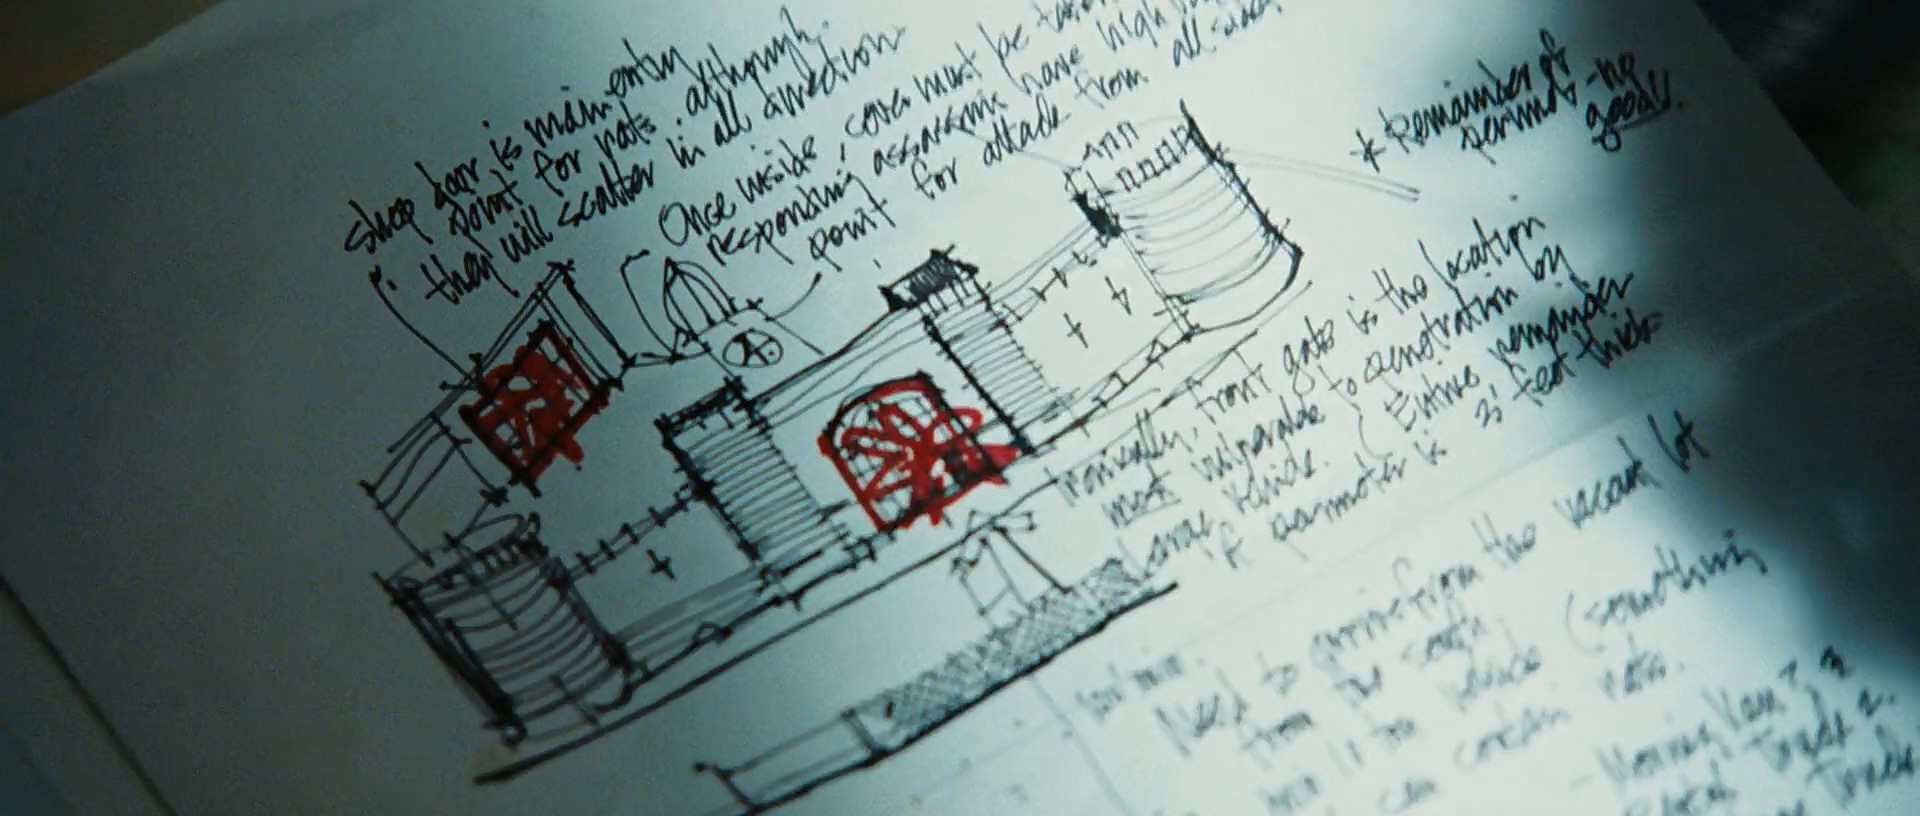 shop door is main entry
point for rats. although.
they will scatter in all direction
Once inside, cover must be taken
responding assassins have high
point for attack from all sides
* Remainder of
perimet - no
good.
A.
Ironically, front gate is the location
most vulnerable to penetration by
large vehicle. (Entire remainder
of perimeter is 3' feet thick
Need to arrive from the vacant lot
from the south
in vehicle (something
can contain rats.
- Moving Van ? 3
Truck 2.
Truck